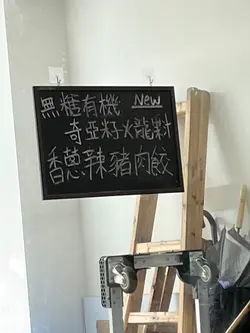 無糖有機 New
奇亞籽火龍果汁
香蔥辣豬肉餃